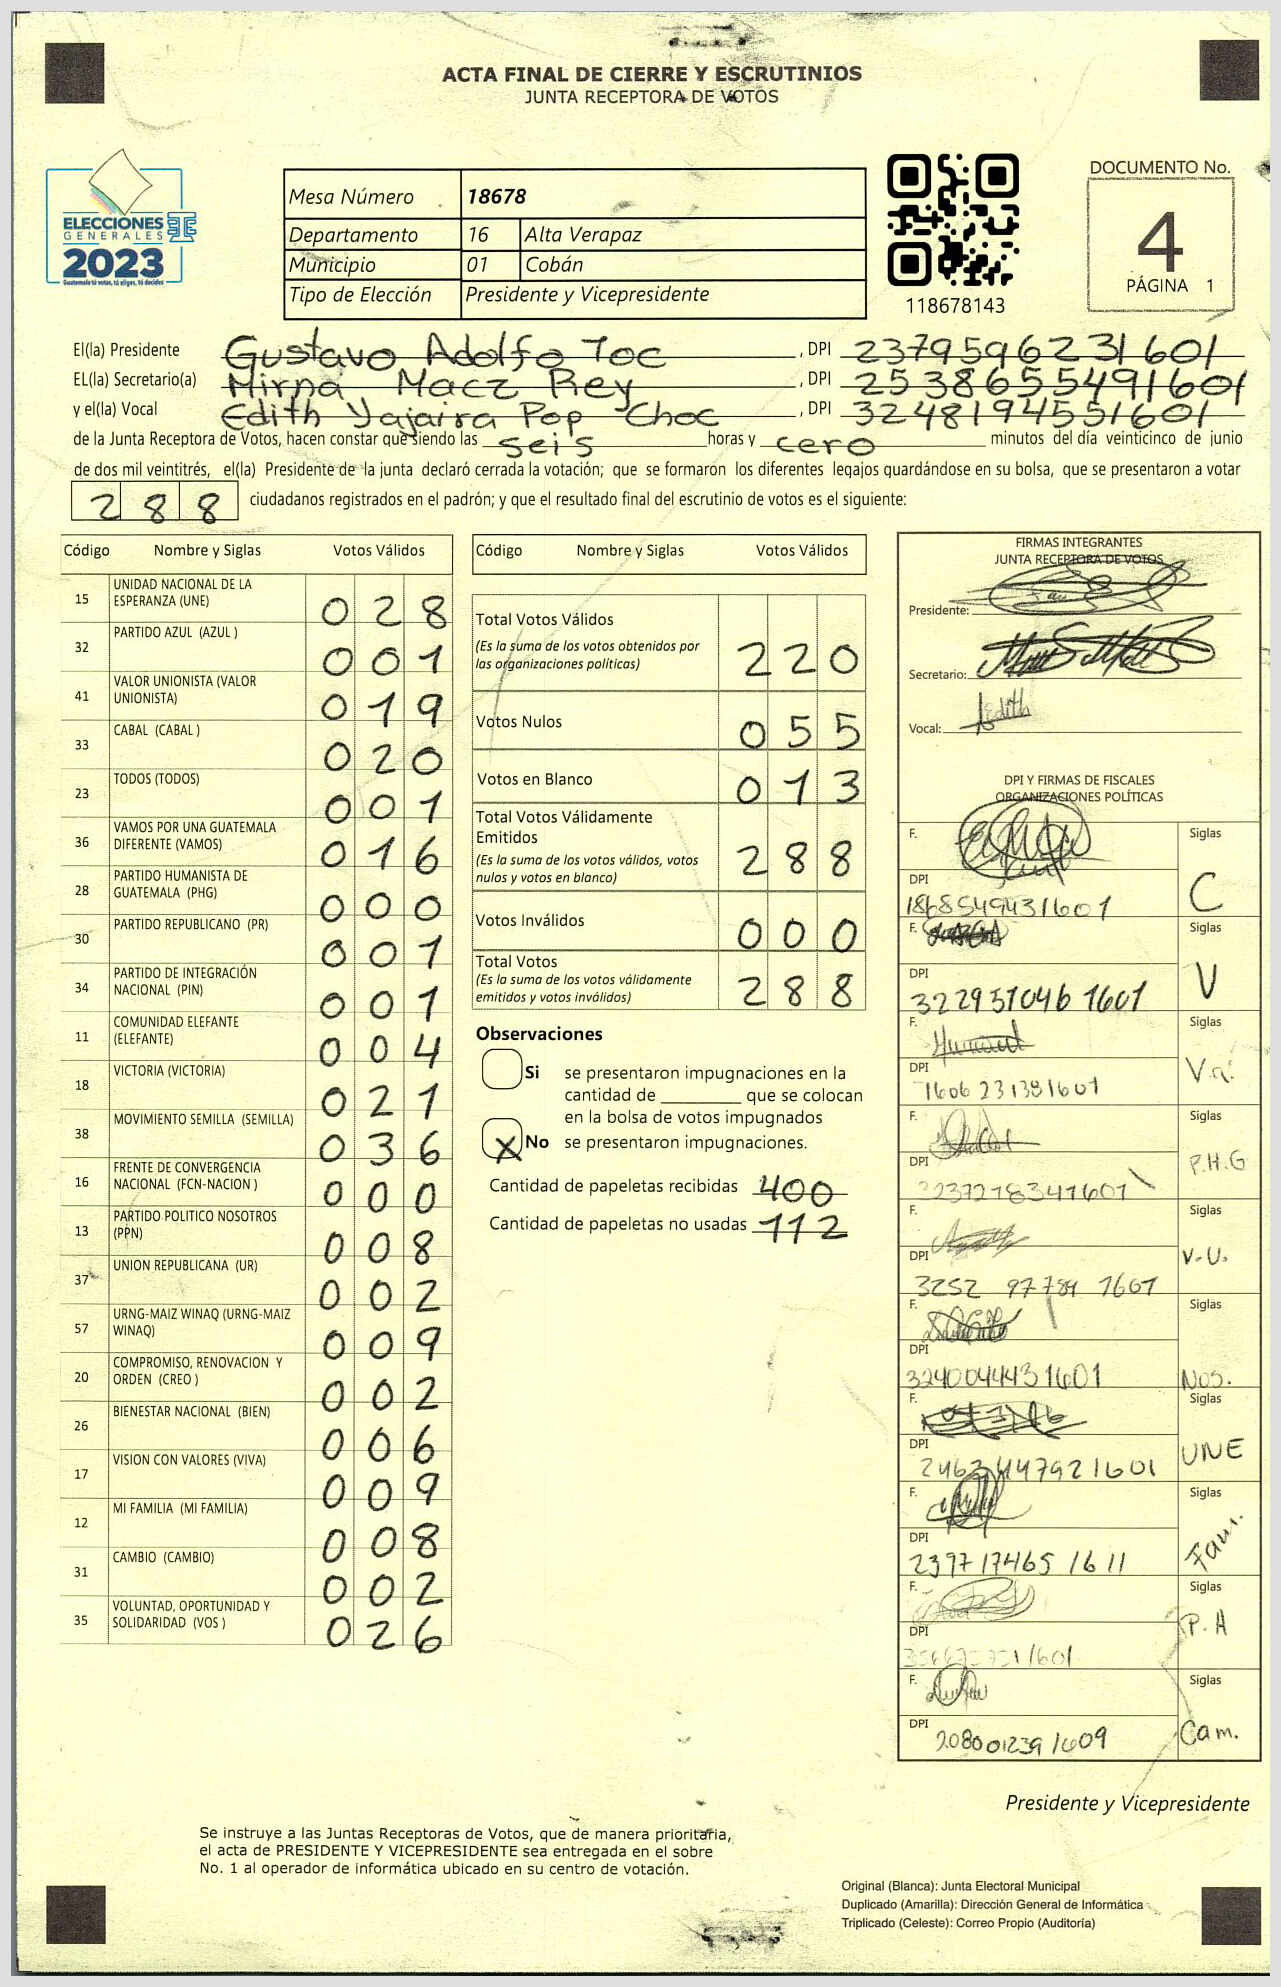 ACTA FINAL DE CIERRE Y ESCRUTINIOS
JUNTA RECEPTORA DE VOTOS
ELECCIONES
GENERALES
2023
Guatemala tú votas, tú eliges, tú decides
Mesa Número 18678
Departamento 16 Alta Verapaz
Municipio 01 Cobán
Tipo de Elección Presidente y Vicepresidente
118678143
DOCUMENTO No.
4
PÁGINA 1
El(la) Presidente Gustavo Adolfo Toc, DPI 2379596231601
EL(la) Secretario(a) Mirna Macz Rey, DPI 2538655491601
y el(la) Vocal Edith Yajaira Pop Choc, DPI 3248194551601
de la Junta Receptora de Votos, hacen constar que siendo las seis horas y cero minutos del día veinticinco de junio
de dos mil veintitrés, el(la) Presidente de la junta declaró cerrada la votación; que se formaron los diferentes legajos guardándose en su bolsa, que se presentaron a votar
288 ciudadanos registrados en el padrón; y que el resultado final del escrutinio de votos es el siguiente:
Código Nombre y Siglas Votos Válidos
15 UNIDAD NACIONAL DE LA ESPERANZA (UNE) 028
32 PARTIDO AZUL (AZUL ) 001
41 VALOR UNIONISTA (VALOR UNIONISTA) 019
33 CABAL (CABAL ) 020
23 TODOS (TODOS) 001
36 VAMOS POR UNA GUATEMALA DIFERENTE (VAMOS) 016
28 PARTIDO HUMANISTA DE GUATEMALA (PHG) 000
30 PARTIDO REPUBLICANO (PR) 001
34 PARTIDO DE INTEGRACIÓN NACIONAL (PIN) 001
11 COMUNIDAD ELEFANTE (ELEFANTE) 004
18 VICTORIA (VICTORIA) 021
38 MOVIMIENTO SEMILLA (SEMILLA) 036
16 FRENTE DE CONVERGENCIA NACIONAL (FCN-NACION ) 000
13 PARTIDO POLITICO NOSOTROS (PPN) 008
37 UNION REPUBLICANA (UR) 002
57 URNG-MAIZ WINAQ (URNG-MAIZ WINAQ) 009
20 COMPROMISO, RENOVACION Y ORDEN (CREO ) 002
26 BIENESTAR NACIONAL (BIEN) 006
17 VISION CON VALORES (VIVA) 009
12 MI FAMILIA (MI FAMILIA) 008
31 CAMBIO (CAMBIO) 002
35 VOLUNTAD, OPORTUNIDAD Y SOLIDARIDAD (VOS ) 026
Código Nombre y Siglas Votos Válidos
Total Votos Válidos 220
(Es la suma de los votos obtenidos por
las organizaciones políticas)
Votos Nulos 055
Votos en Blanco 013
Total Votos Válidamente
Emitidos 288
(Es la suma de los votos válidos, votos
nulos y votos en blanco)
Votos Inválidos 000
Total Votos 288
(Es la suma de los votos válidamente
emitidos y votos inválidos)
Observaciones
Si se presentaron impugnaciones en la
cantidad de ________ que se colocan
en la bolsa de votos impugnados
X No se presentaron impugnaciones.
Cantidad de papeletas recibidas 400
Cantidad de papeletas no usadas 112
FIRMAS INTEGRANTES
JUNTA RECEPTORA DE VOTOS
Presidente:
Secretario:
Vocal: Edith
DPI Y FIRMAS DE FISCALES
ORGANIZACIONES POLÍTICAS
F. Siglas C
DPI 1868549431601
F. Siglas V
DPI 3229510461601
F. Siglas V.a.
DPI 1606231381601
F. Siglas P.H.G
DPI 3237218341601
F. Siglas V.U.
DPI 3252 97784 1601
F. Siglas Nos.
DPI 3240044431601
F. Siglas UNE
DPI 2463447921601
F. Siglas Fam.
DPI 2397174651611
F. Siglas P.A
DPI
F. Siglas Cam.
DPI 2080012391609
Presidente y Vicepresidente
Se instruye a las Juntas Receptoras de Votos, que de manera prioritaria,
el acta de PRESIDENTE Y VICEPRESIDENTE sea entregada en el sobre
No. 1 al operador de informática ubicado en su centro de votación.
Original (Blanca): Junta Electoral Municipal
Duplicado (Amarilla): Dirección General de Informática
Triplicado (Celeste): Correo Propio (Auditoría)